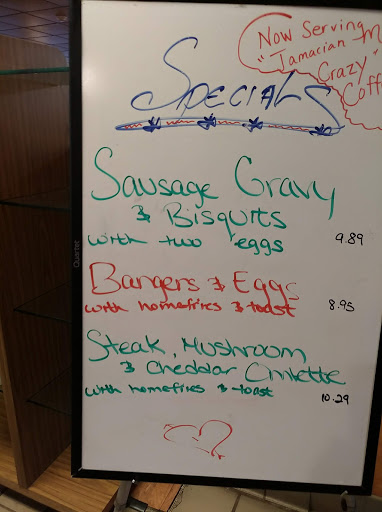 Now Serving
"Jamacian
Crazy"
Specials
Sausage Gravy
& Bisquits
with two eggs 9.89
Bangers & Eggs
with homefries & toast 8.95
Steak, Mushroom
& Cheddar Omlette
with homefries & toast 10.29
Quartet